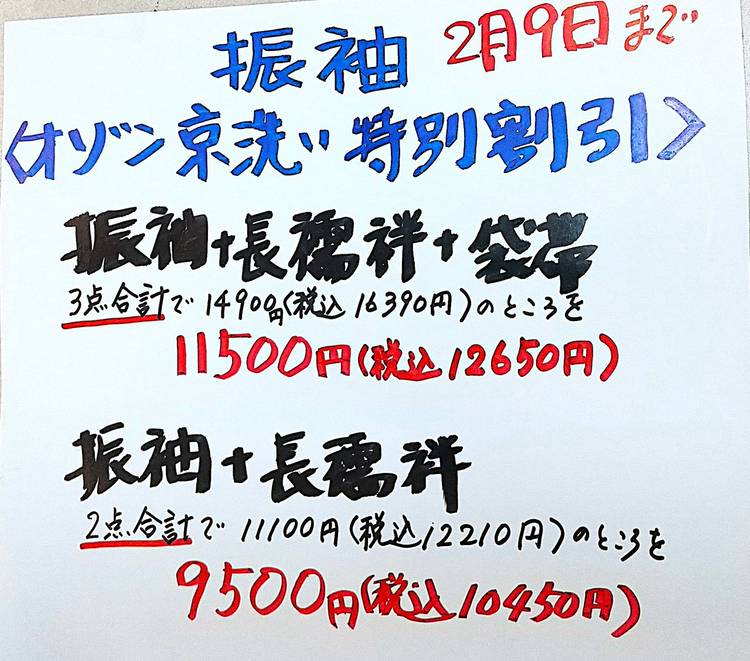 振袖 2月9日まで
〈オゾン京洗い 特別割引〉
振袖+長襦袢+袋帯
3点合計で14900円(税込16390円)のところを
11500円(税込12650円)
振袖+長襦袢
2点合計で11100円(税込12210円)のところを
9500円(税込10450円)